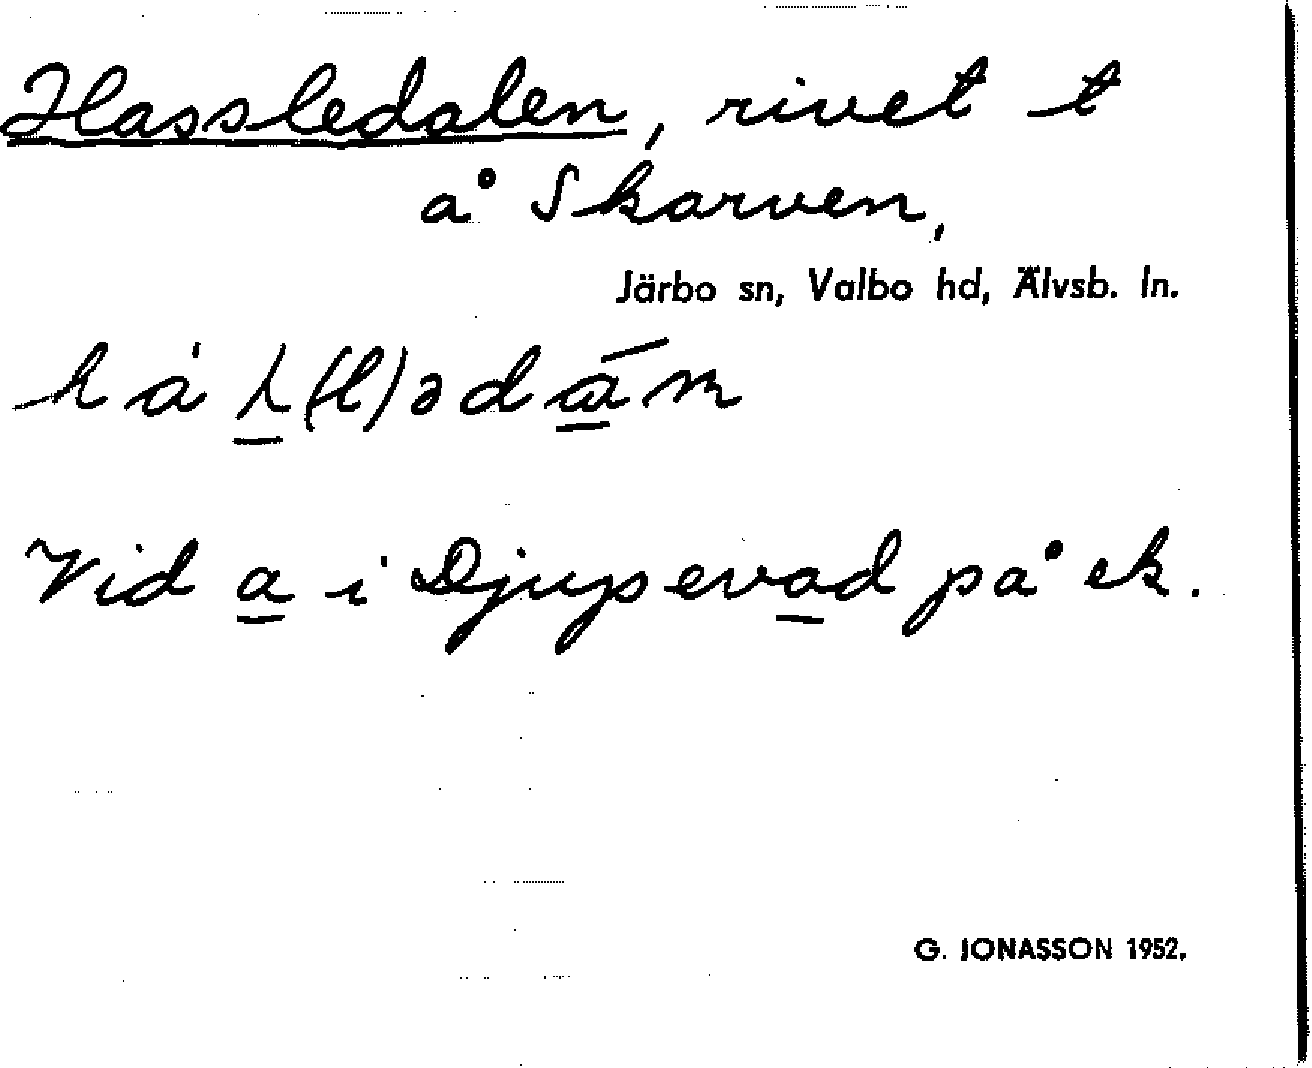 Hassledalen, rivet t
å Skarven,
Järbo sn, Valbo hd, Älvsb. ln.
Vid a i Djupsevad på ek.
G. JONASSON 1952.